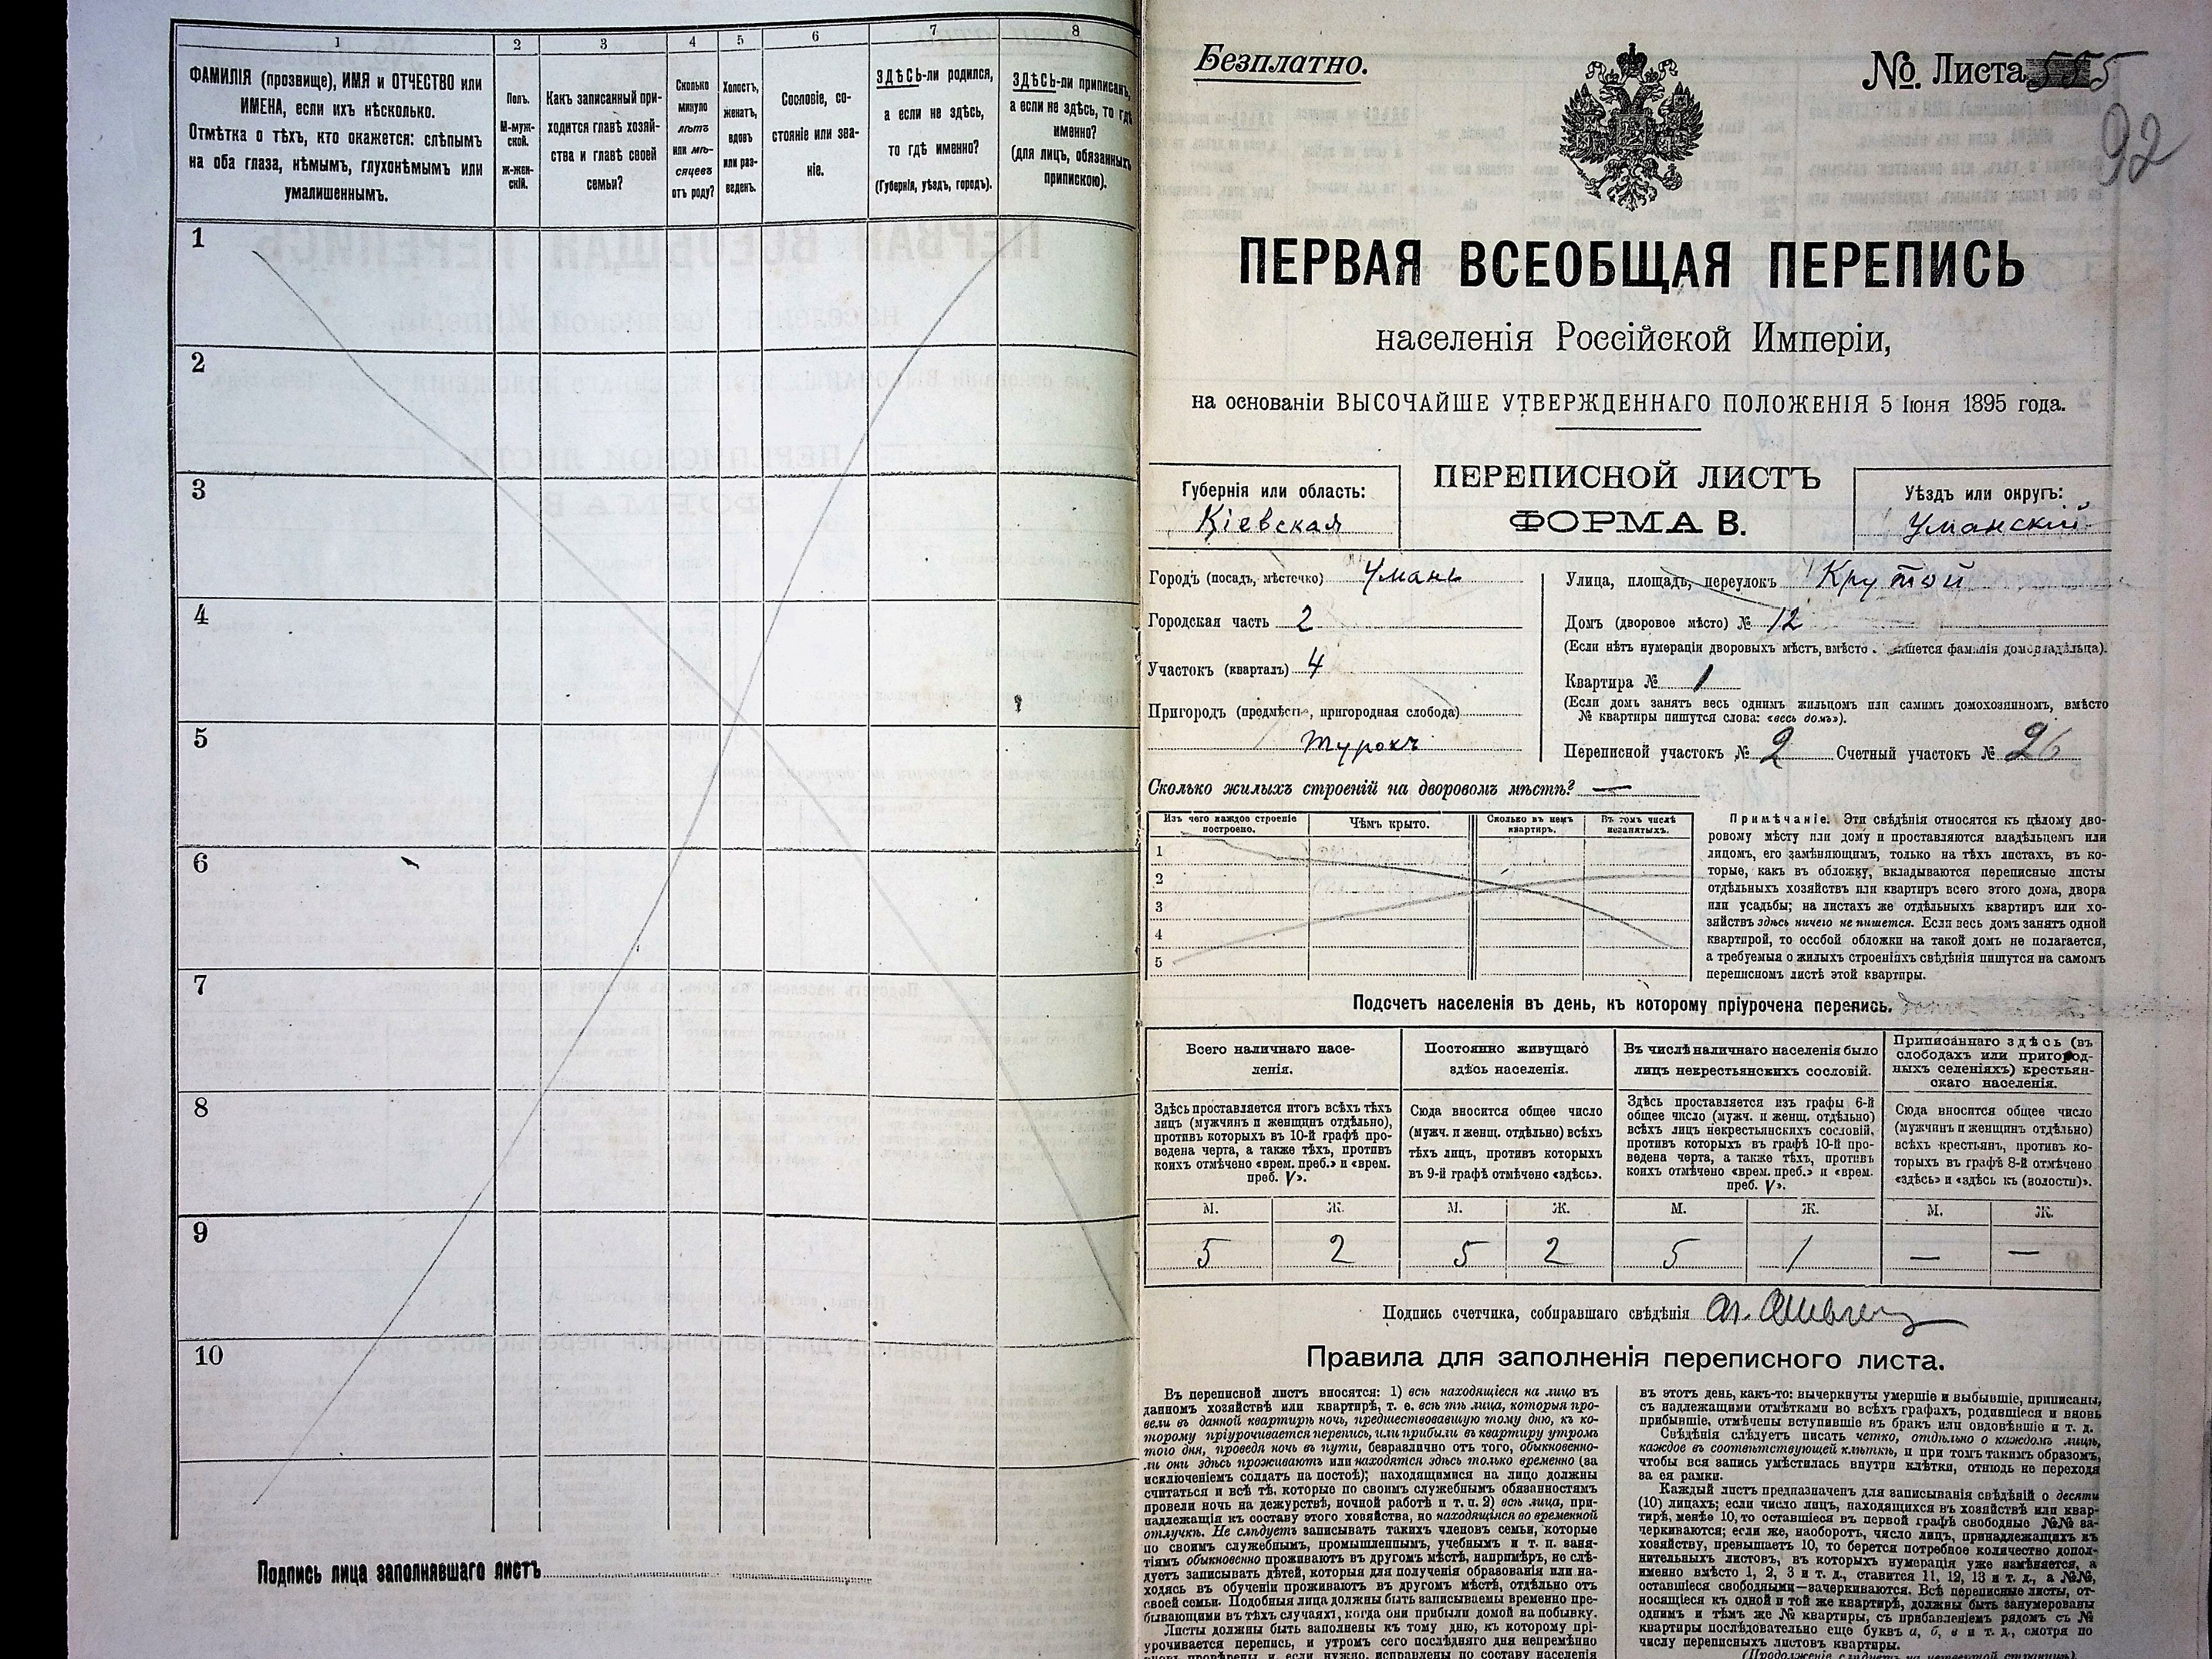 1 2 3 4 5 6 7 8
ФАМИЛІЯ (прозвище), ИМЯ и ОТЧЕСТВО или
ИМЕНА, если ихъ нѣсколько.
Отмѣтка о тѣхъ, кто окажется: слѣпымъ
на оба глаза, нѣмымъ, глухонѣмымъ или
умалишеннымъ.
Полъ.
М-муж-
ской.
ж-жен-
скій.
Какъ записанный при-
ходится главѣ хозяй-
ства и главѣ своей
семьи?
Сколько
минуло
лѣтъ
или мѣ-
сяцевъ
отъ роду?
Холостъ,
женатъ,
вдовъ
или раз-
веденъ.
Сословіе, со-
стояніе или зва-
ніе.
ЗДѢСЬ-ли родился,
а если не здѣсь,
то гдѣ именно?
(Губернія, уѣздъ, городъ).
ЗДѢСЬ-ли приписанъ,
а если не здѣсь, то гдѣ
именно?
(для лицъ, обязанныхъ
припискою).
1
2
3
4
5
6
7
8
9
10
Подпись лица заполнявшаго листъ
Безплатно.
№ Листа 555
92
ПЕРВАЯ ВСЕОБЩАЯ ПЕРЕПИСЬ
населенія Россійской Имперіи,
на основаніи ВЫСОЧАЙШЕ УТВЕРЖДЕННАГО ПОЛОЖЕНІЯ 5 Іюня 1895 года.
Губернія или область:
Кіевская
ПЕРЕПИСНОЙ ЛИСТЪ
ФОРМА В.
Уѣздъ или округъ:
Уманскій
Городъ (посадъ, мѣстечко) Умань
Городская часть 2
Участокъ (кварталъ) 4
Пригородъ (предмѣстье, пригородная слобода)
Турокъ
Улица, площадь, переулокъ Крутой
Домъ (дворовое мѣсто) № 12
(Если нѣтъ нумераціи дворовыхъ мѣстъ, вмѣсто пишется фамилія домовладѣльца).
Квартира № 1
(Если домъ занятъ весь однимъ жильцомъ или самимъ домохозяиномъ, вмѣсто
№ квартиры пишутся слова: «весь домъ»).
Переписной участокъ № 2 Счетный участокъ № 26
Сколько жилыхъ строеній на дворовомъ мѣстѣ? —
Изъ чего каждое строеніе
построено.
Чѣмъ крыто.
Сколько въ немъ
квартиръ.
Въ томъ числѣ
незанятыхъ.
1
2
3
4
5
Примѣчаніе. Эти свѣдѣнія относятся къ цѣлому дво-
ровому мѣсту или дому и проставляются владѣльцемъ или
лицомъ, его замѣняющимъ, только на тѣхъ листахъ, въ ко-
торые, какъ въ обложку, вкладываются переписные листы
отдѣльныхъ хозяйствъ или квартиръ всего этого дома, двора
или усадьбы; на листахъ же отдѣльныхъ квартиръ или хо-
зяйствъ здѣсь ничего не пишется. Если весь домъ занятъ одной
квартирой, то особой обложки на такой домъ не полагается,
а требуемыя о жилыхъ строеніяхъ свѣдѣнія пишутся на самомъ
переписномъ листѣ этой квартиры.
Подсчетъ населенія въ день, къ которому пріурочена перепись.
Всего наличнаго насе-
ленія.
Здѣсь проставляется итогъ всѣхъ тѣхъ
лицъ (мужчинъ и женщинъ отдѣльно),
противъ которыхъ въ 10-й графѣ про-
ведена черта, а также тѣхъ, противъ
коихъ отмѣчено «врем. преб.» и «врем.
преб. V».
Постоянно живущаго
здѣсь населенія.
Сюда вносится общее число
(мужч. и женщ. отдѣльно) всѣхъ
тѣхъ лицъ, противъ которыхъ
въ 9-й графѣ отмѣчено «здѣсь».
Въ числѣ наличнаго населенія было
лицъ некрестьянскихъ сословій.
Здѣсь проставляется изъ графы 6-й
общее число (мужч. и женщ. отдѣльно)
всѣхъ лицъ некрестьянскихъ сословій,
противъ которыхъ въ графѣ 10-й про-
ведена черта, а также тѣхъ, противъ
коихъ отмѣчено «врем. преб.» и «врем.
преб. V».
Приписаннаго здѣсь (въ
слободахъ или пригород-
ныхъ селеніяхъ) крестьян-
скаго населенія.
Сюда вносится общее число
(мужчинъ и женщинъ отдѣльно)
всѣхъ крестьянъ, противъ ко-
торыхъ въ графѣ 8-й отмѣчено
«здѣсь» и «здѣсь къ (волости)».
М. Ж. М. Ж. М. Ж. М. Ж.
5 2 5 2 5 1 — —
Подпись счетчика, собиравшаго свѣдѣнія
Правила для заполненія переписного листа.
Въ переписной листъ вносятся: 1) всѣ находящіеся на лицо въ
данномъ хозяйствѣ или квартирѣ, т. е. всѣ тѣ лица, которыя про-
вели въ данной квартирѣ ночь, предшествовавшую тому дню, къ ко-
торому пріурочивается перепись, или прибыли въ квартиру утромъ
того дня, проведя ночь въ пути, безразлично отъ того, обыкновенно-
ли они здѣсь проживаютъ или находятся здѣсь только временно (за
исключеніемъ солдатъ на постоѣ); находящимися на лицо должны
считаться и всѣ тѣ, которые по своимъ служебнымъ обязанностямъ
провели ночь на дежурствѣ, ночной работѣ и т. п. 2) всѣ лица, при-
надлежащія къ составу этого хозяйства, но находящіяся во временной
отлучкѣ. Не слѣдуетъ записывать такихъ членовъ семьи, которые
по своимъ служебнымъ, промышленнымъ, учебнымъ и т. п. заня-
тіямъ обыкновенно проживаютъ въ другомъ мѣстѣ, напримѣръ, не слѣ-
дуетъ записывать дѣтей, которыя для полученія образованія или на-
ходясь въ обученіи проживаютъ въ другомъ мѣстѣ, отдѣльно отъ
своей семьи. Подобныя лица должны быть записываемы временно пре-
бывающими въ тѣхъ случаяхъ, когда они прибыли домой на побывку.
Листы должны быть заполнены къ тому дню, къ которому прі-
урочивается перепись, и утромъ сего послѣдняго дня непремѣнно
вновь провѣрены и, если нужно, исправлены по составу населенія
въ этотъ день, какъ-то: вычеркнуты умершіе и выбывшіе, приписаны,
съ надлежащими отмѣтками во всѣхъ графахъ, родившіеся и вновь
прибывшіе, отмѣчены вступившіе въ бракъ или овдовѣвшіе и т. д.
Свѣдѣнія слѣдуетъ писать четко, отдѣльно о каждомъ лицѣ,
каждое въ соотвѣтствующей клѣткѣ, и при томъ такимъ образомъ,
чтобы вся запись умѣстилась внутри клѣтки, отнюдь не переходя
за ея рамки.
Каждый листъ предназначенъ для записыванія свѣдѣній о десяти
(10) лицахъ; если число лицъ, находящихся въ хозяйствѣ или квар-
тирѣ, менѣе 10, то оставшіеся въ первой графѣ свободные №№ за-
черкиваются; если же, наоборотъ, число лицъ, принадлежащихъ къ
хозяйству, превышаетъ 10, то берется потребное количество допол-
нительныхъ листовъ, въ которыхъ нумерація уже измѣняется, а
именно вмѣсто 1, 2, 3 и т. д., ставится 11, 12, 13 и т. д., а №№,
оставшіеся свободными—зачеркиваются. Всѣ переписные листы, от-
носящіеся къ одной и той же квартирѣ, должны быть занумерованы
однимъ и тѣмъ же № квартиры, съ прибавленіемъ рядомъ съ №
квартиры послѣдовательно еще буквъ а, б, в и т. д., смотря по
числу переписныхъ листовъ квартиры.
(Продолженіе слѣдуетъ на четвертой страницѣ).